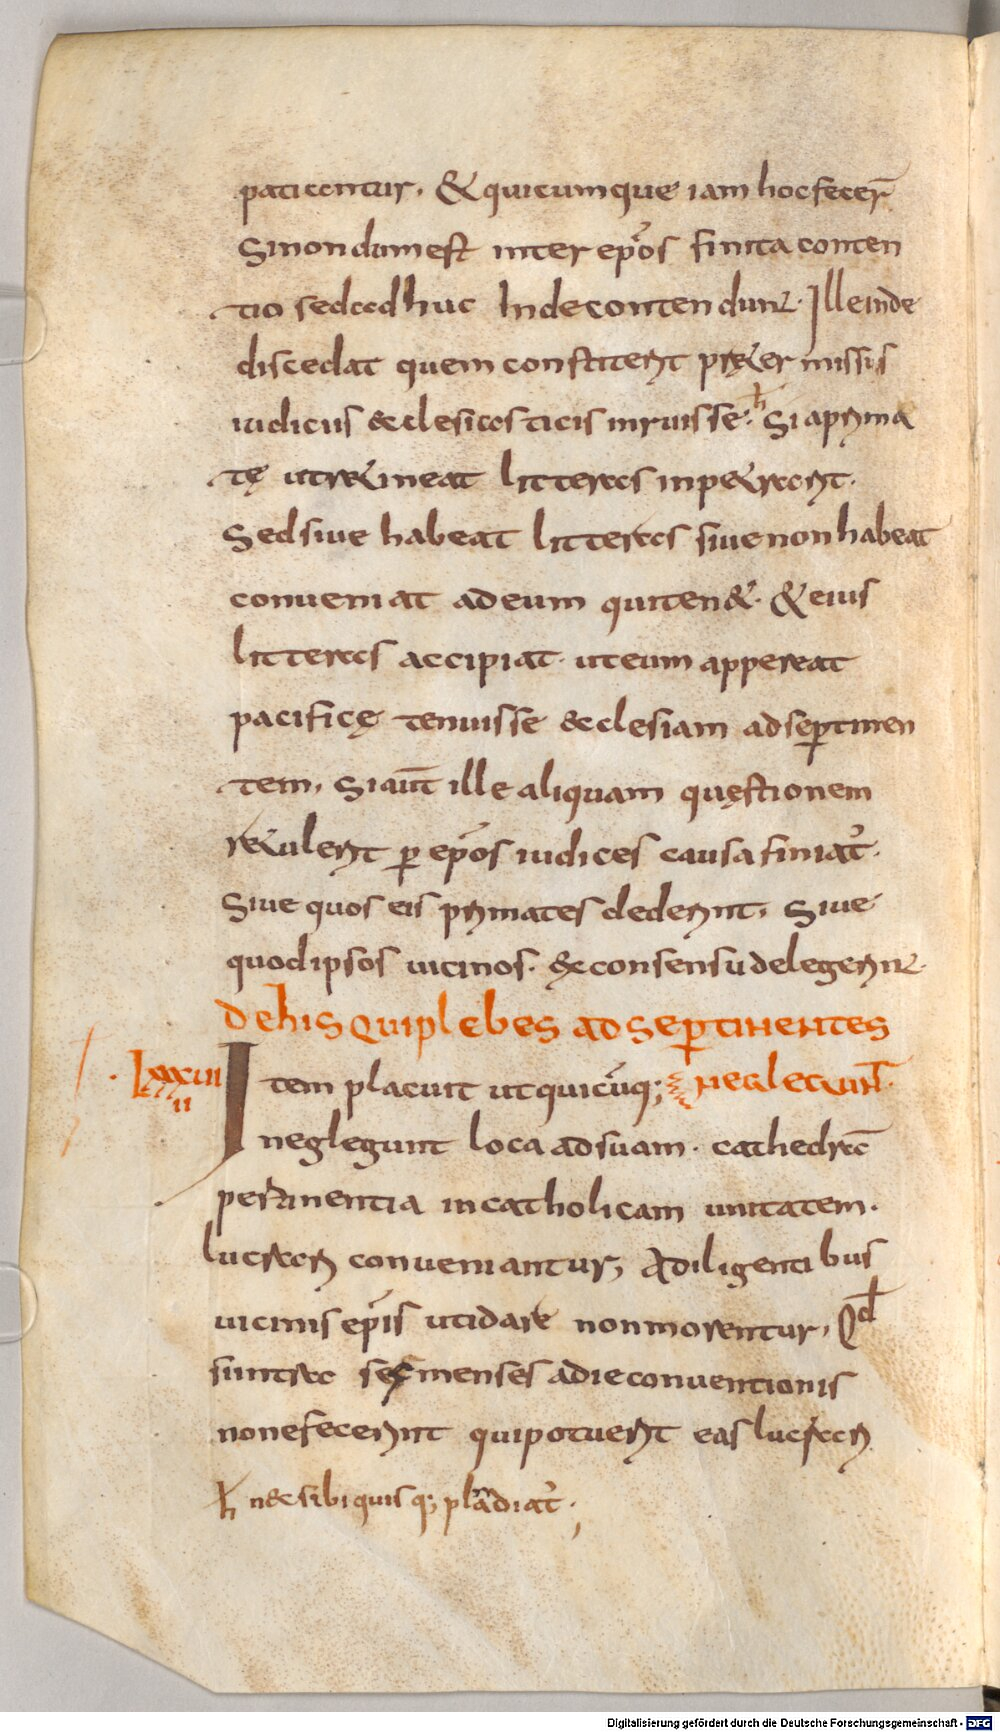 patiantur. & quicumque iam hoc fecer̄
Si nondum est inter ep̄os finita conten
tio sed adhuc Inde contendunt. Ille inde
discedat quem constiterit pręt&er missis
iudicus &clesiasticis inruisse. h Si a prima
tę ut r&ineat litteras inp&rarit.
Sed siue habeat litteras siue non habeat
conueniat ad eum qui ten&. & eius
litteras accipiat. ut eum appereat
pacificę tenuisse &clesiam ad se ꝑtinen
tem, Si aut̄ ille aliquam quęstionem
r&ulerit ꝑ ep̄os iudices causa finiat᷑.
Siue quos eis primates dederint, Siue
quod ipsos uicinos. &consensu delegerint.
De his qui plebes ad se ꝑtinentes
LXXXIII Item placuit ut quicūq; neglegunt.
II
neglegunt loca ad suam. cathedrā
pertinentia in catholicam unitatem.
lucrari conueniantur; A diligentibus
uicinis ep̄is ut id are non morentur, Qd
si intra sex menses a die conuentionis
non efecerint qui potuerit eas lucrari
h n& sibi quisq; plā diat᷑.
Digitalisierung gefördert durch die Deutsche Forschungsgemeinschaft - DFG